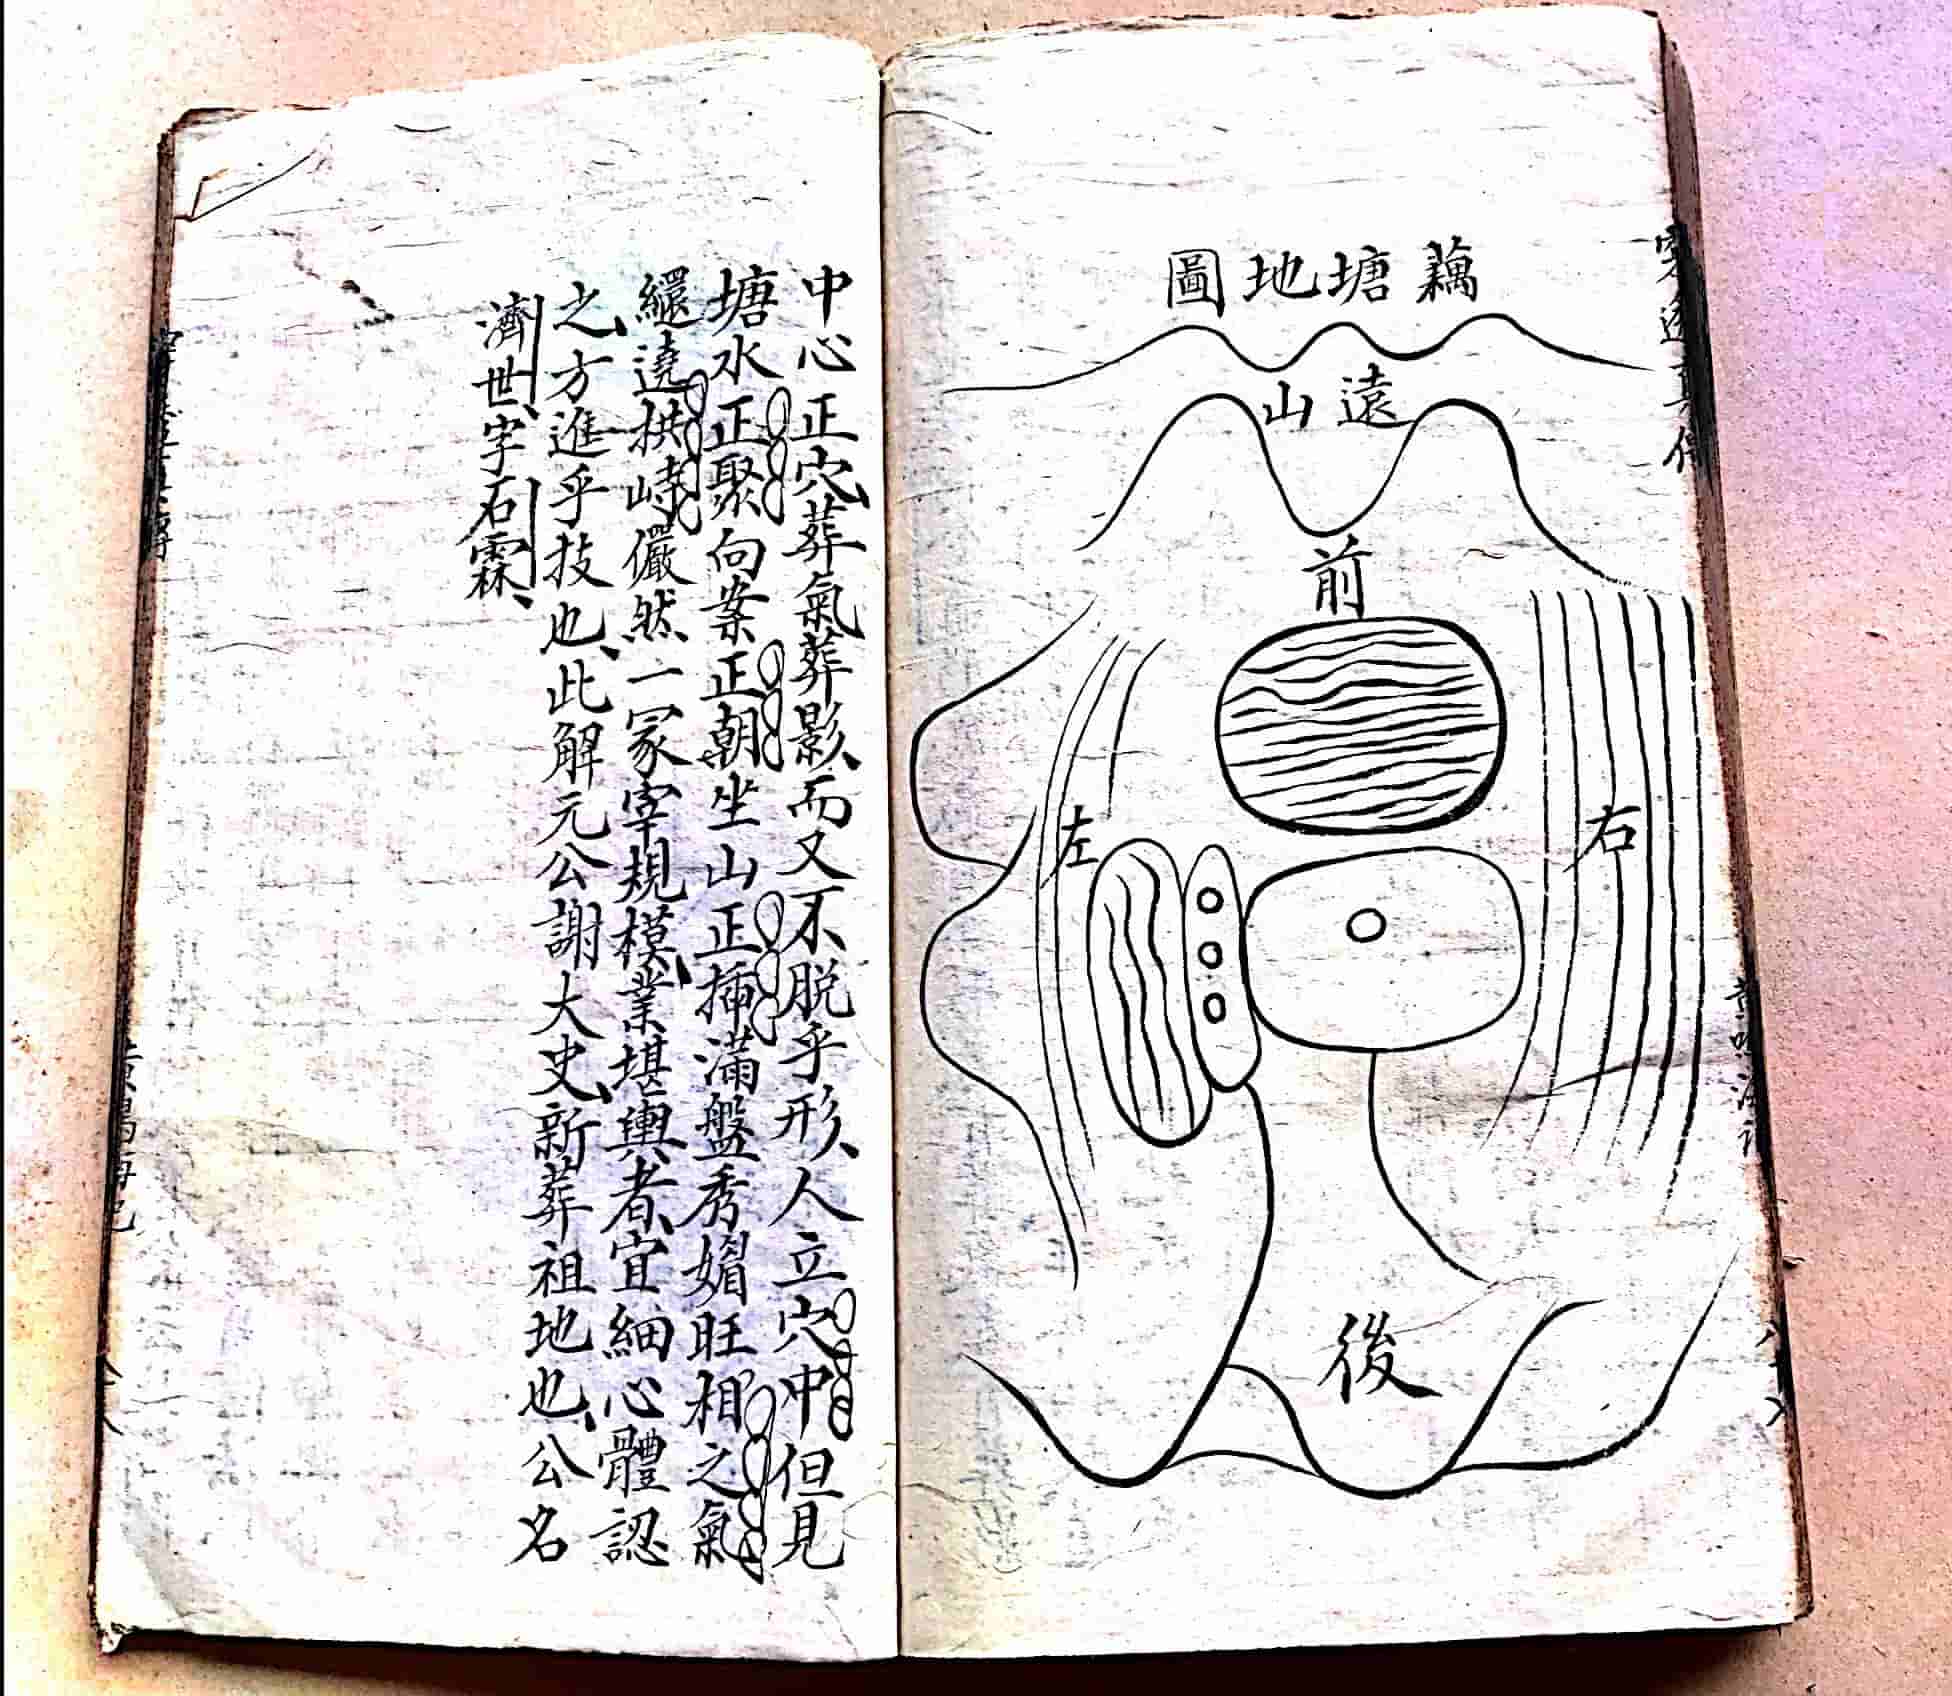 藕塘地圖
遠山
前
左
右
後
中心正穴葬氣葬影而又不脱乎形人立穴中但見
塘水正聚向案正朝坐山正揷滿盤秀媚旺相之氣
繯遶拱峙儼然一冡宰規模業堪輿者宜細心體認
之方進乎技也此解元公謝大史新葬祖地也公名
濟世字石霖